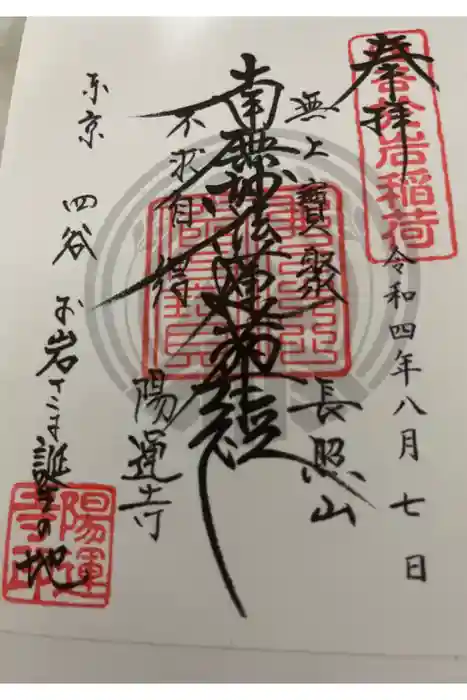 奉拝
令和四年八月七日
無上寶聚
長照山
南無妙法蓮華経
不求自得
陽運寺
東京 四谷 お岩さま誕生の地
陽運寺印